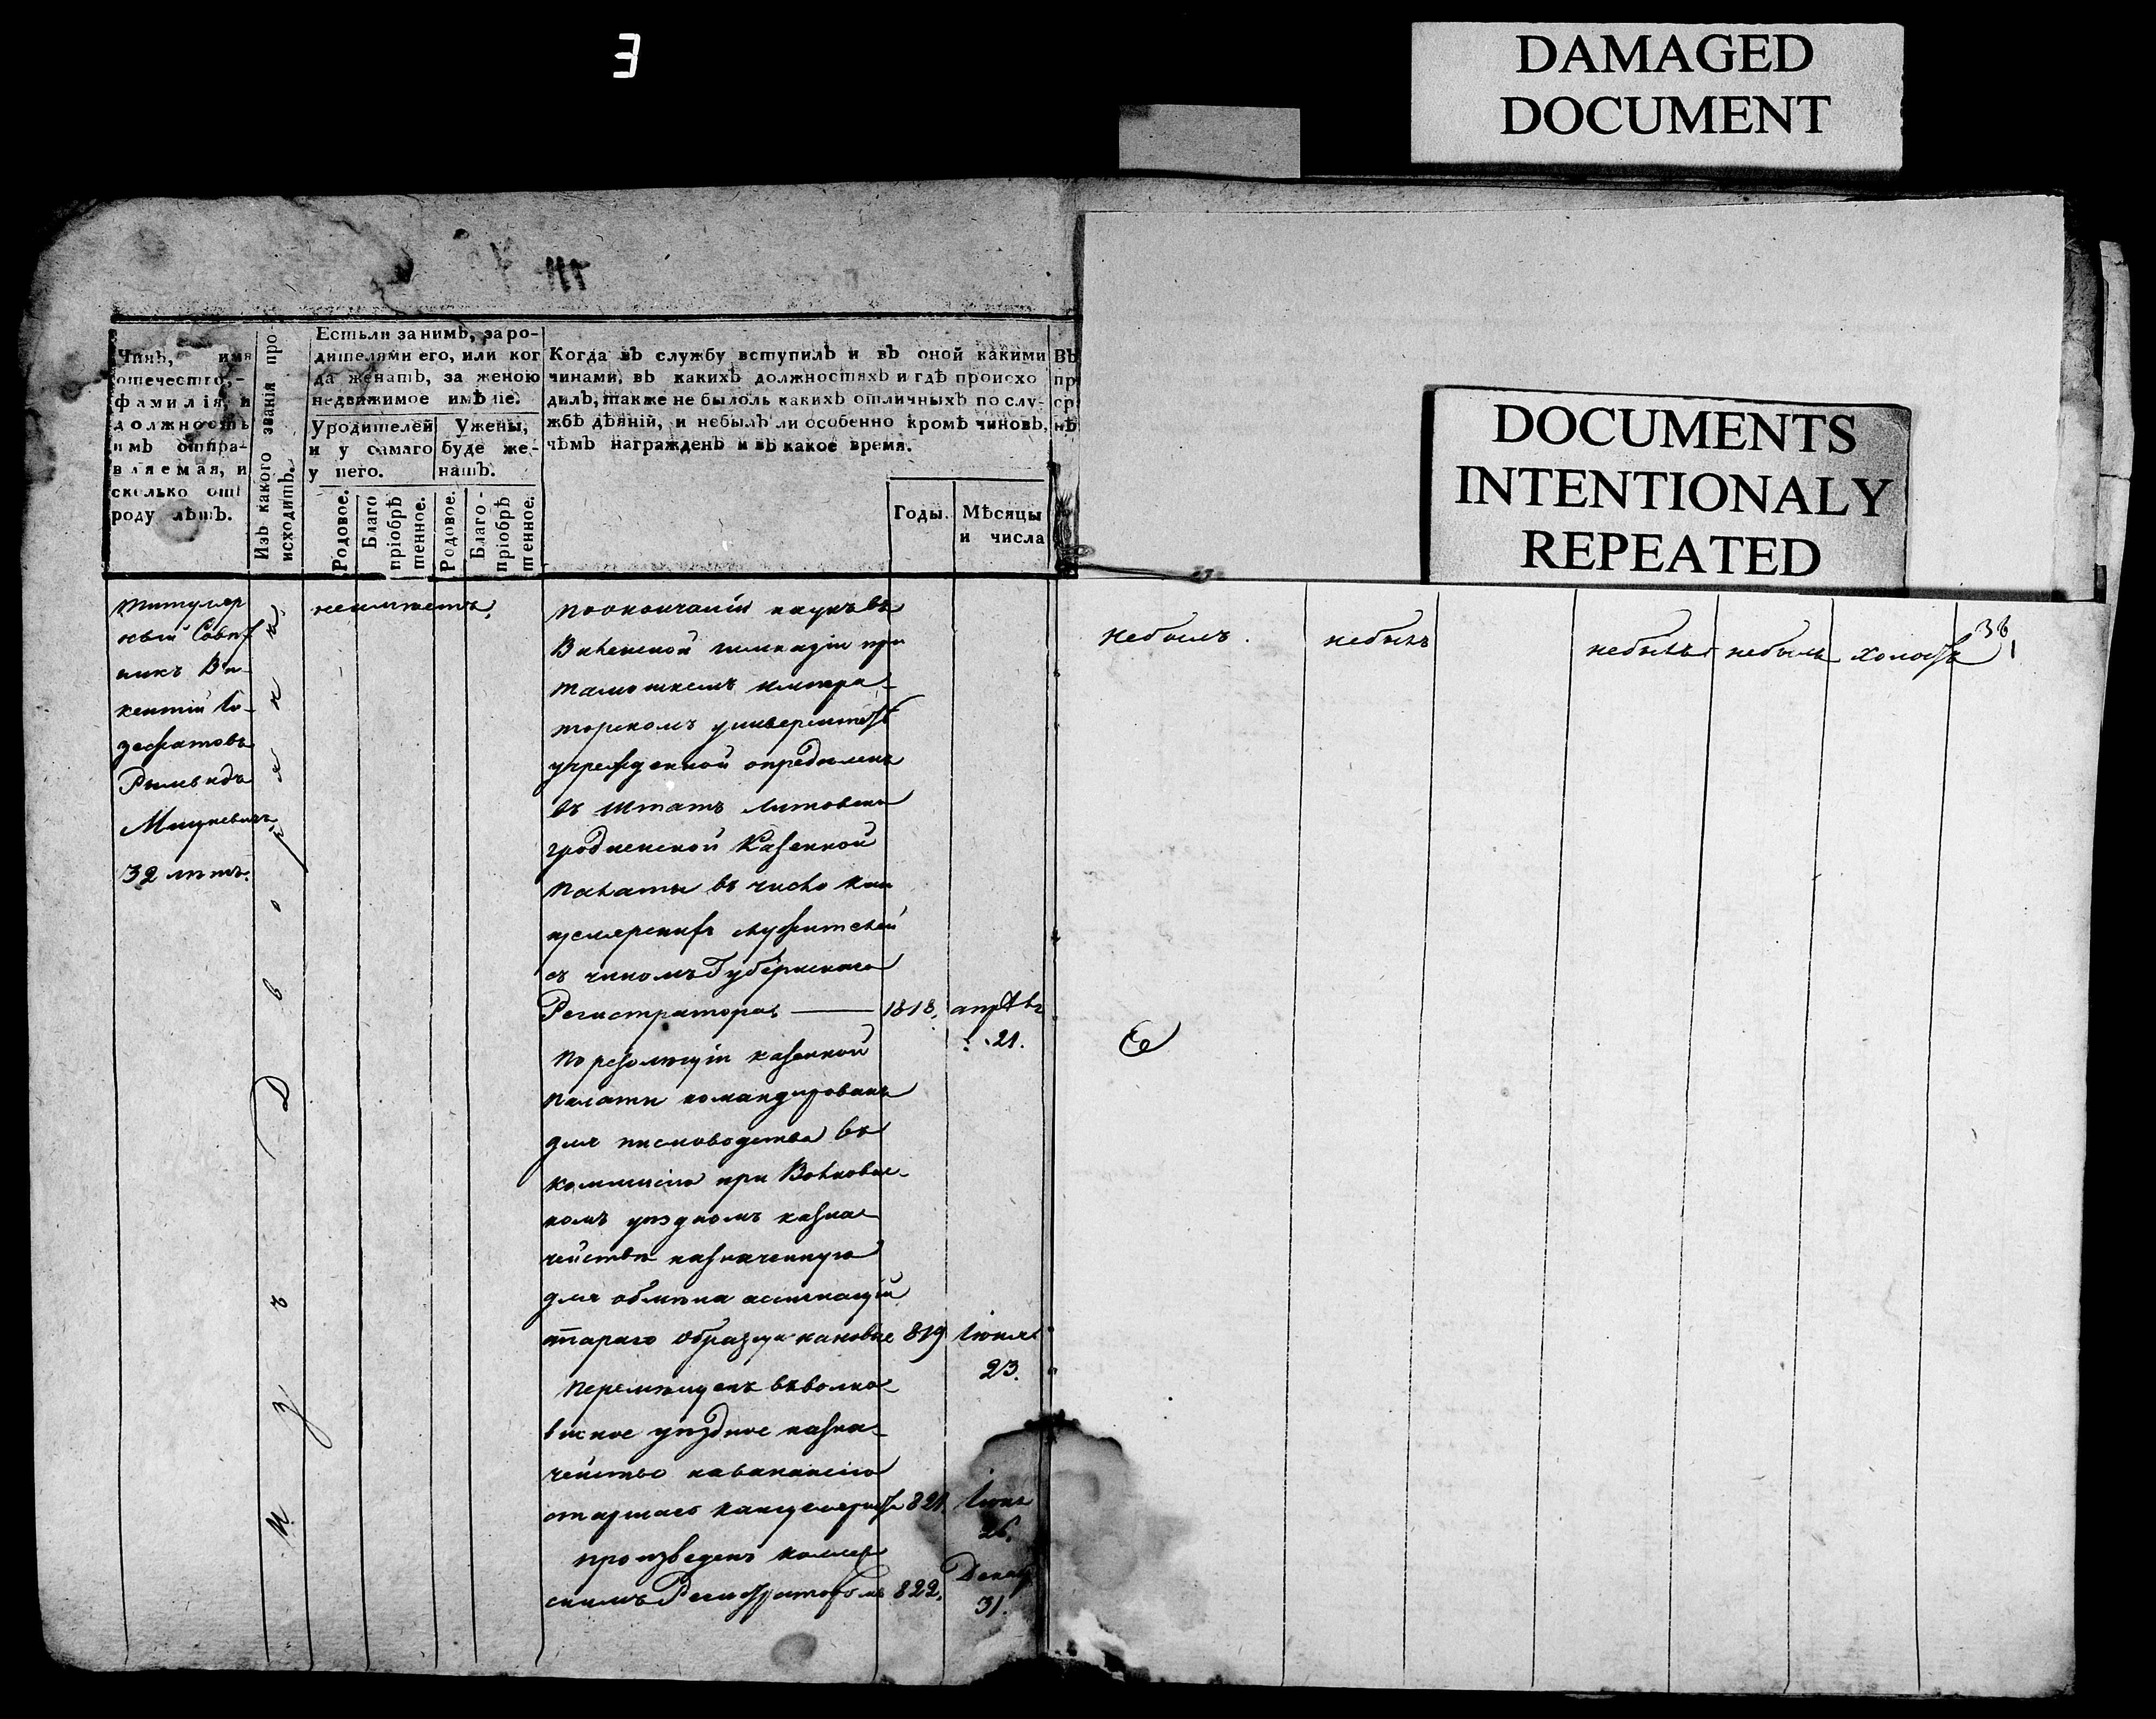 DAMAGED
DOCUMENT
Чинъ, имя
отечество,
фамилія, и
должность
имъ отпра-
вляемая, и
сколько отъ
роду лѣтъ.
Изъ какого званія про-
исходитъ.
Естьли за нимъ, за ро-
дителями его, или ког
да женатъ, за женою
недвижимое имѣніе.
Уродителей
и у самаго
у него.
Ужены,
буде же-
натъ.
Родовое.
Благо
пріобрѣ
тенное.
Родовое.
Благо-
пріобрѣ
тенное.
Когда въ службу вступилъ и въ оной какими
чинами, въ какихъ должностяхъ и гдѣ происхо
дилъ, также не былоль какихъ отличныхъ по слу-
жбѣ дѣяній, и небылъ ли особенно кромѣ чиновъ,
чѣмъ награжденъ и въ какое время.
Годы.
Мѣсяцы
и числа
Въ
пр
ср
нѣ
DOCUMENTS
INTENTIONALY
REPEATED
Титуляр
ный Совѣт
никъ Ви-
кентий Ио-
зефатовъ
Рымвидъ
Мицкевичъ
32 лѣтъ.
Изъ Дворянъ
неимѣетъ
По окончаніи наукъ въ
Виленской гимназіи при
тамошнемъ импера-
торскомъ университетѣ
учрежденной опредѣленъ
въ штатъ Литовско
гродненской Казенной
Палаты въ число кан
целярскихъ служителей
съ чиномъ Губернскаго
Регистратора — 1818. апрѣль
21.
По резолюціи казенной
палаты командированъ
для писмоводства въ
коммисію при Волковис-
комъ уѣздномъ казна
чействѣ назначенную
для обмѣна ассигнацій
стараго образца нановые 819 Іюля
23.
Перемѣщенъ въ волко-
виское уѣздное казна-
чейство навакансію
старшаго канцеляриста 821. Іюня
26.
произведенъ коллеж
скимъ Регистраторомъ 822. Декаб
31.
небылъ.
небылъ
небылъ
небылъ
холостъ